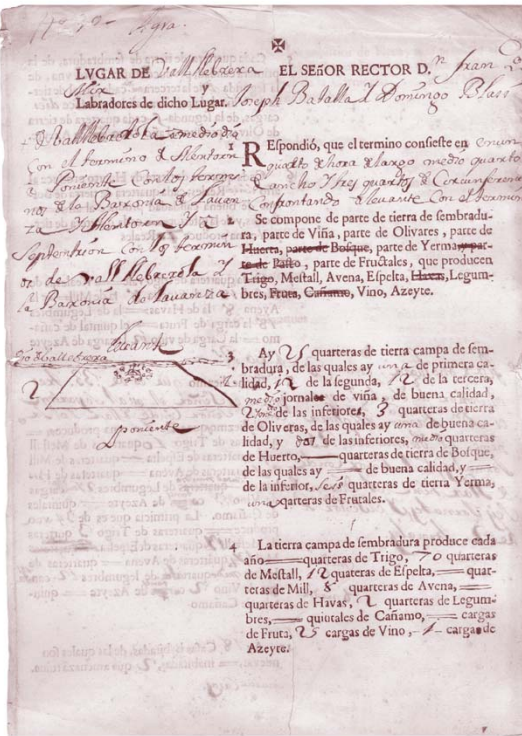 Agra.
LVGAR DE Vall llebrera EL SEñOR RECTOR D.n Fran.co
Mix y
Labradores de dicho Lugar. Joseph Batalla Y Domingo Blasi
1
REspondió, que el termino consiste en
quarto de hora de largo medio quarto
de ancho Y tres quartos de Circumferen
Confrontando a levante Con el termino
de Vall llebrerola a mediodia
Con el termino de Montoren
a Poniente Con los termi
nos de la Baronia de
Y Montoren Y a
Septentrion con los termin
os de Vall llebrerola Y
la Baronia de
2
Se compone de parte de tierra de sembradu-
ra, parte de Viña, parte de Olivares, parte de
Huerta, parte de Bosque, parte de Yerma par-
te de Pasto, parte de Fructales, que producen
Trigo, Mestall, Avena, Espelta, Havas, Legum-
bres, Fruta, Cañamo, Vino, Azeyte.
Levante
Vall llebrera
poniente
3
Ay 25 quarteras de tierra campa de sem-
bradura, de las quales ay una de primera ca-
lidad, 12 de la segunda, 12 de la tercera,
medio jornales de viña, de buena calidad,
2 de las inferiores, 3 quarteras de tierra
de Oliveras, de las quales ay una de buena ca-
lidad, y dos de las inferiores, media quarteras
de Huerto, — quarteras de tierra de Bosque,
de las quales ay — de buena calidad, y —
de la inferior, seis quarteras de tierra Yerma,
una qarteras de Frutales.
4
La tierra campa de sembradura produce cada
año — quarteras de Trigo, 70 quarteras
de Mestall, 12 quateras de Espelta, — quar-
teras de Mill, 8 quarteras de Avena, —
quarteras de Havas, 2 quarteras de Legum-
bres, — quintales de Cañamo, — cargas
de Fruta, 25 cargas de Vino, 4 cargas de
Azeyte.